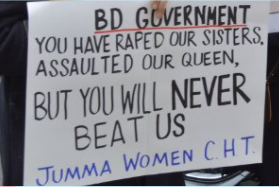 BD GOVERNMENT
YOU HAVE RAPED OUR SISTERS,
ASSAULTED OUR QUEEN,
BUT YOU WILL NEVER
BEAT US
JUMMA WOMEN C.H.T.